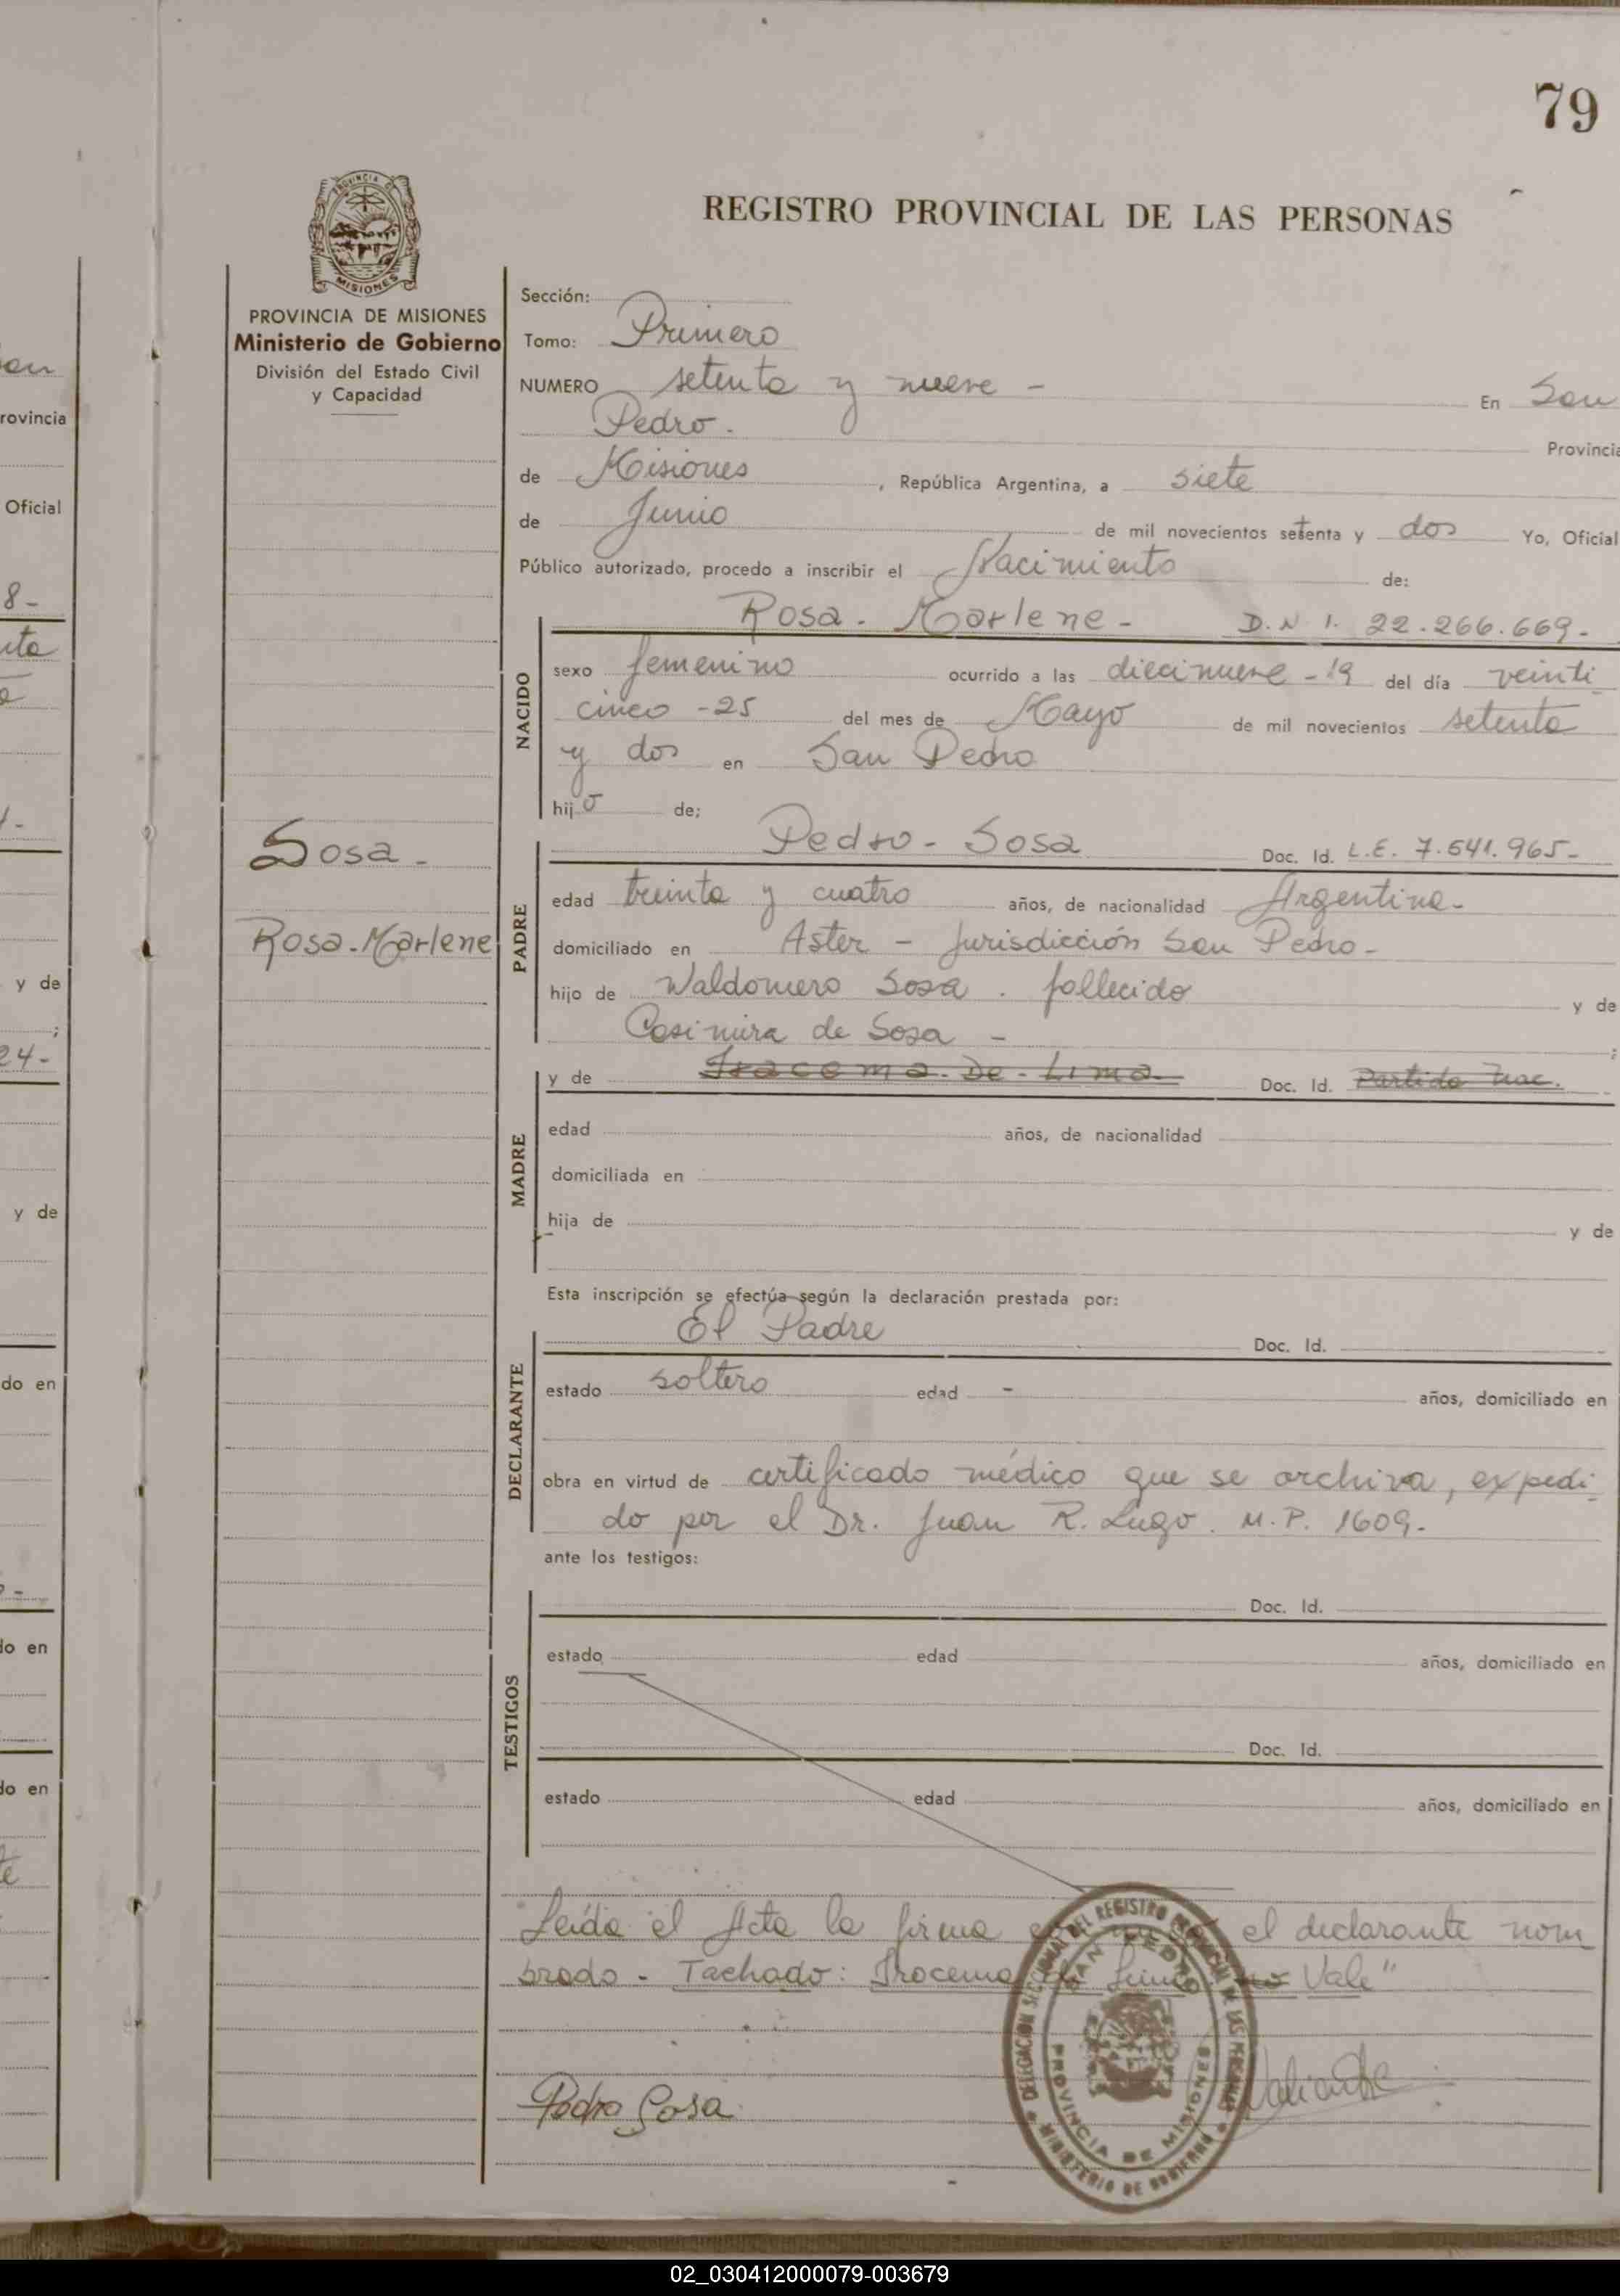 79
PROVINCIA DE MISIONES
REGISTRO PROVINCIAL DE LAS PERSONAS
PROVINCIA DE MISIONES
Ministerio de Gobierno
División del Estado Civil
y Capacidad
Sección:
Tomo: Primero
NUMERO setenta y nueve - En San
Pedro. Provincia
de Misiones, República Argentina, a siete
de Junio de mil novecientos setenta y dos Yo, Oficial
Público autorizado, procedo a inscribir el Nacimiento de:
Rosa - Marlene - D.N.I. 22.266.669-
NACIDO
sexo femenino ocurrido a las diecinueve - 19 del día veinti
cinco - 25 del mes de Mayo de mil novecientos setenta
y dos en San Pedro
hijo de;
Sosa -
Rosa - Marlene
PADRE
Pedro - Sosa Doc. Id. L.E. 7.541.965-
edad treinta y cuatro años, de nacionalidad Argentina-
domiciliado en Aster - Jurisdicción San Pedro -
hijo de Waldomero Sosa . fallecido y de
Casimira de Sosa - ;
MADRE
y de Iracema - De - Lima - Doc. Id. Partida Nac.
edad años, de nacionalidad
domiciliada en
hija de y de
Esta inscripción se efectúa según la declaración prestada por:
DECLARANTE
El Padre Doc. Id.
estado soltero edad - años, domiciliado en
obra en virtud de certificado médico que se archiva, expedi-
do por el Dr. Juan R. Lugo. M.P. 1609.
ante los testigos:
TESTIGOS
Doc. Id.
estado edad años, domiciliado en
Doc. Id.
estado edad años, domiciliado en
"Leída el Acta la firma el declarante nom
brado - Tachado: Iracema de Lima no Vale"
Pedro Sosa
DELEGACION SECCIONAL DEL REGISTRO PROVINCIAL DE LAS PERSONAS
SAN PEDRO
PROVINCIA DE MISIONES
MINISTERIO DE GOBIERNO
ou
rovincia
Oficial
8-
nta
y de
;
24-
y de
do en
do en
do en
te
02_030412000079-003679